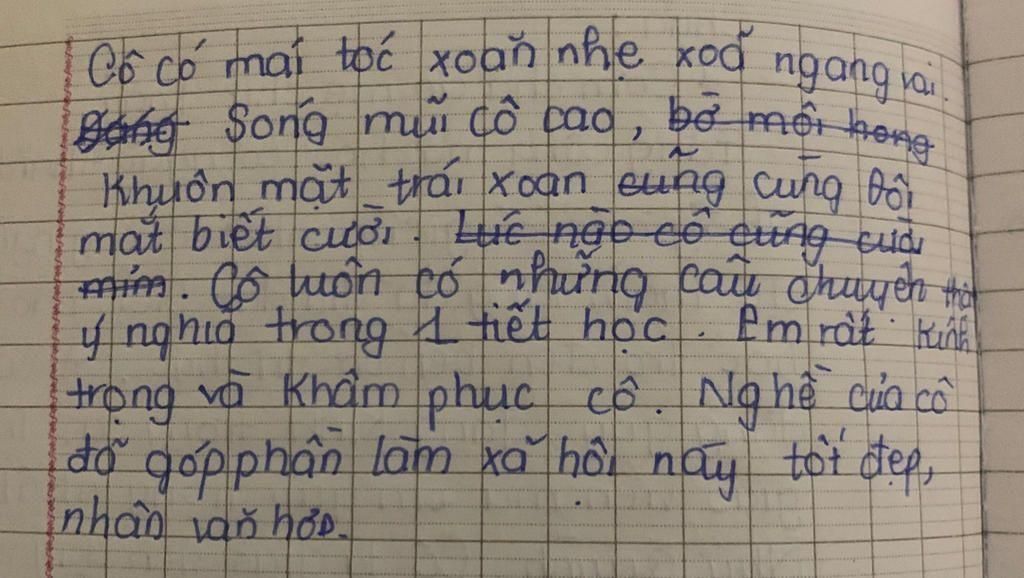 Cô có mái tóc xoăn nhẹ xoã ngang vai.
Sóng mũi cô cao, bờ môi hong
Khuôn mặt trái xoan cũng cùng đôi
mắt biết cười. Lúc nào cô cũng cười
mím. Cô luôn có những câu chuyện thú
ý nghĩa trong 1 tiết học. Em rất kính
trọng và khâm phục cô. Nghề của cô
đã góp phần làm xã hội này tốt đẹp,
nhân văn hơn.